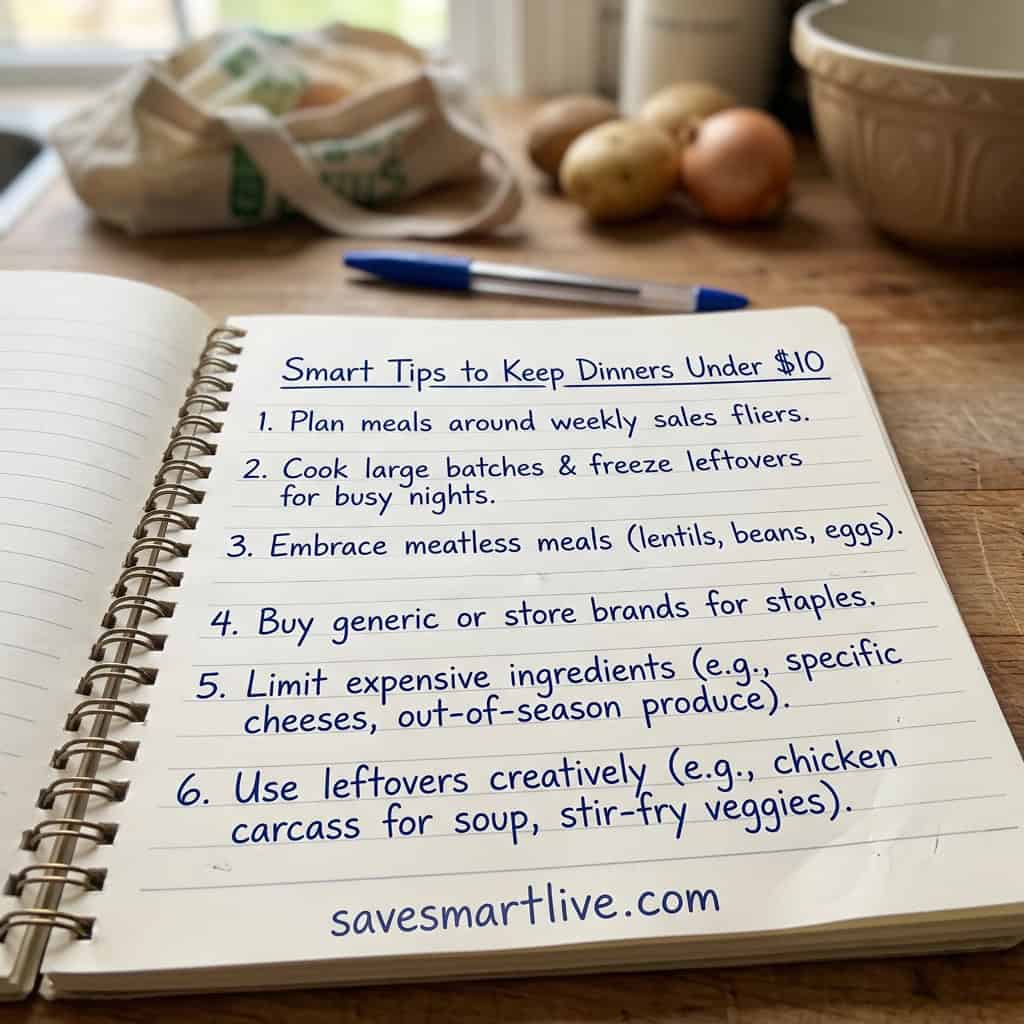 Smart Tips to Keep Dinners Under $10
1. Plan meals around weekly sales fliers.
2. Cook large batches & freeze leftovers
for busy nights.
3. Embrace meatless meals (lentils, beans, eggs).
4. Buy generic or store brands for staples.
5. Limit expensive ingredients (e.g., specific
cheeses, out-of-season produce).
6. Use leftovers creatively (e.g., chicken
carcass for soup, stir-fry veggies).
savesmartlive.com